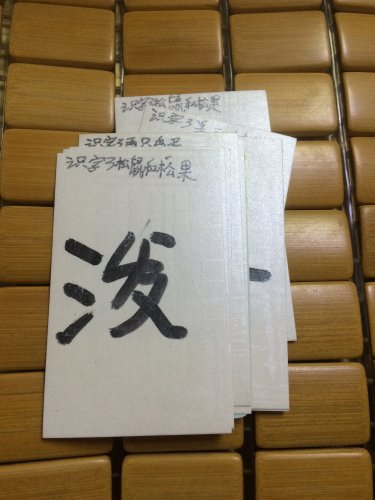 识字3松鼠和松果
识字3
识字3两只
识字3松鼠和松果
泼